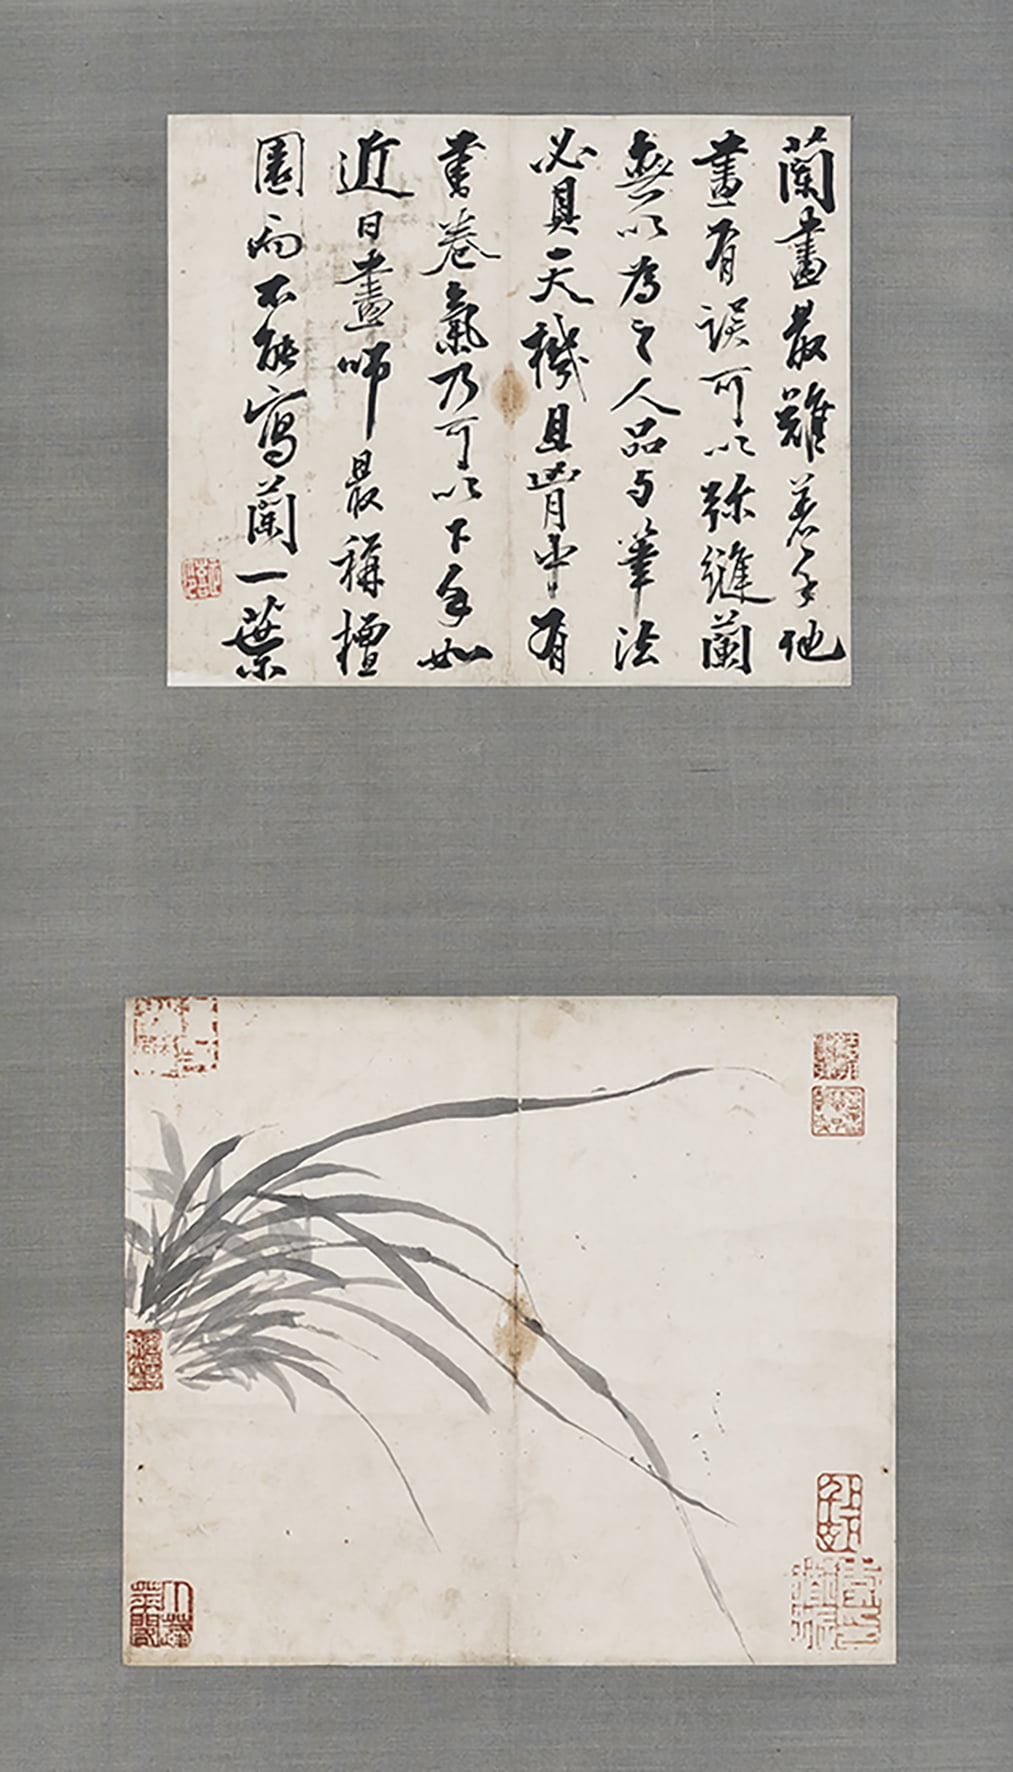 蘭畫最難着手他
畫有誤可以弥縫蘭
無以為之人品与筆法
必具天機且胷中有
書卷氣乃可以下手如
近日畫师最稱檀
園而不能寫蘭一葉
小蓬萊閣